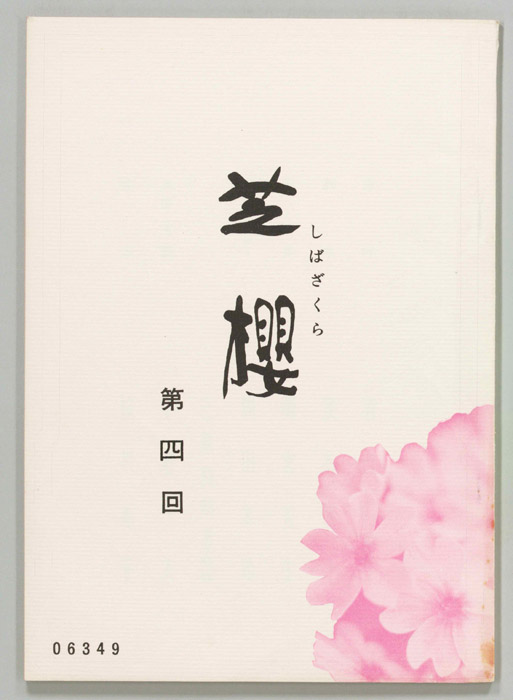 芝櫻
しばざくら
第四回
06349